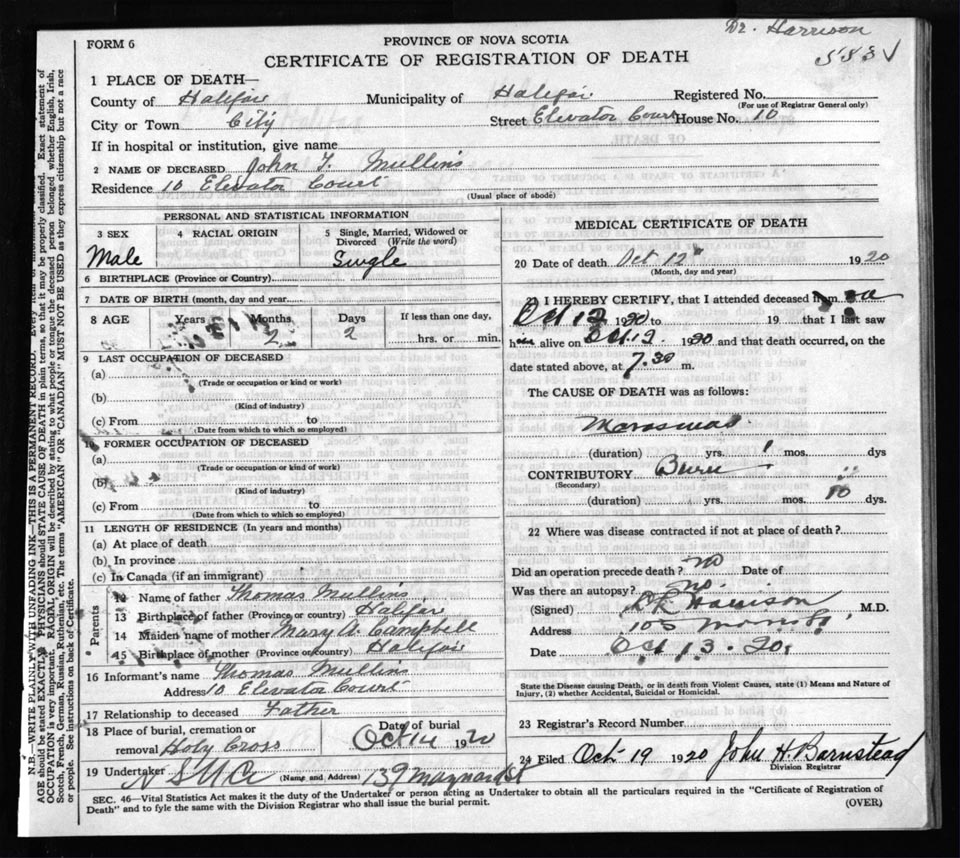 Dr. Harrison
FORM 6
PROVINCE OF NOVA SCOTIA
CERTIFICATE OF REGISTRATION OF DEATH
1 PLACE OF DEATH—
County of Halifax Municipality of Halifax Registered No.
(For use of Registrar General only)
City or Town City Street Elevator Court House No. 10
If in hospital or institution, give name
2 NAME OF DECEASED John T. Mullins
Residence 10 Elevator Court
(Usual place of abode)
PERSONAL AND STATISTICAL INFORMATION
3 SEX 4 RACIAL ORIGIN 5 Single, Married, Widowed or
Divorced (Write the word)
Male Single
6 BIRTHPLACE (Province or Country)
7 DATE OF BIRTH (month, day and year)
8 AGE Years Months Days If less than one day,
2 2 hrs. or min.
9 LAST OCCUPATION OF DECEASED
(a)
(Trade or occupation or kind or work)
(b)
(Kind of industry)
(c) From to
(Date from which to which so employed)
10 FORMER OCCUPATION OF DECEASED
(a)
(Trade or occupation or kind of work)
(b)
(Kind of industry)
(c) From to
(Date from which to which so employed)
11 LENGTH OF RESIDENCE (In years and months)
(a) At place of death
(b) In province
(c) In Canada (if an immigrant)
Parents
12 Name of father Thomas Mullins
13 Birthplace of father (Province or country) Halifax
14 Maiden name of mother Mary A. Campbell
15 Birthplace of mother (Province or country) Halifax
16 Informant's name Thomas Mullins
Address 10 Elevator Court
17 Relationship to deceased Father
18 Place of burial, cremation or Date of burial
removal Holy Cross Oct 14 1920
19 Undertaker (Name and Address) 139 Maynard St
MEDICAL CERTIFICATE OF DEATH
20 Date of death Oct 12 1920
(Month, day and year)
21 I HEREBY CERTIFY, that I attended deceased from
Oct 12 1920 to 19 that I last saw
h alive on Oct 12 1920 and that death occurred, on the
date stated above, at 7.30 m.
The CAUSE OF DEATH was as follows:
Marasmus
(duration) yrs. 1 mos. dys
CONTRIBUTORY
(Secondary)
(duration) yrs. mos. 10 dys.
22 Where was disease contracted if not at place of death?
Did an operation precede death? no Date of
Was there an autopsy? no.
(Signed) D R Harrison M.D.
Address 105 Morris St.
Date Oct 13. 20.
State the Disease causing Death, or in death from Violent Causes, state (1) Means and Nature of
Injury, (2) whether Accidental, Suicidal or Homicidal.
23 Registrar's Record Number
24 Filed Oct 19 1920 John H. Barnstead
Division Registrar
SEC. 46—Vital Statistics Act makes it the duty of the Undertaker or person acting as Undertaker to obtain all the particulars required in the "Certificate of Registration of
Death" and to fyle the same with the Division Registrar who shall issue the burial permit.
(OVER)